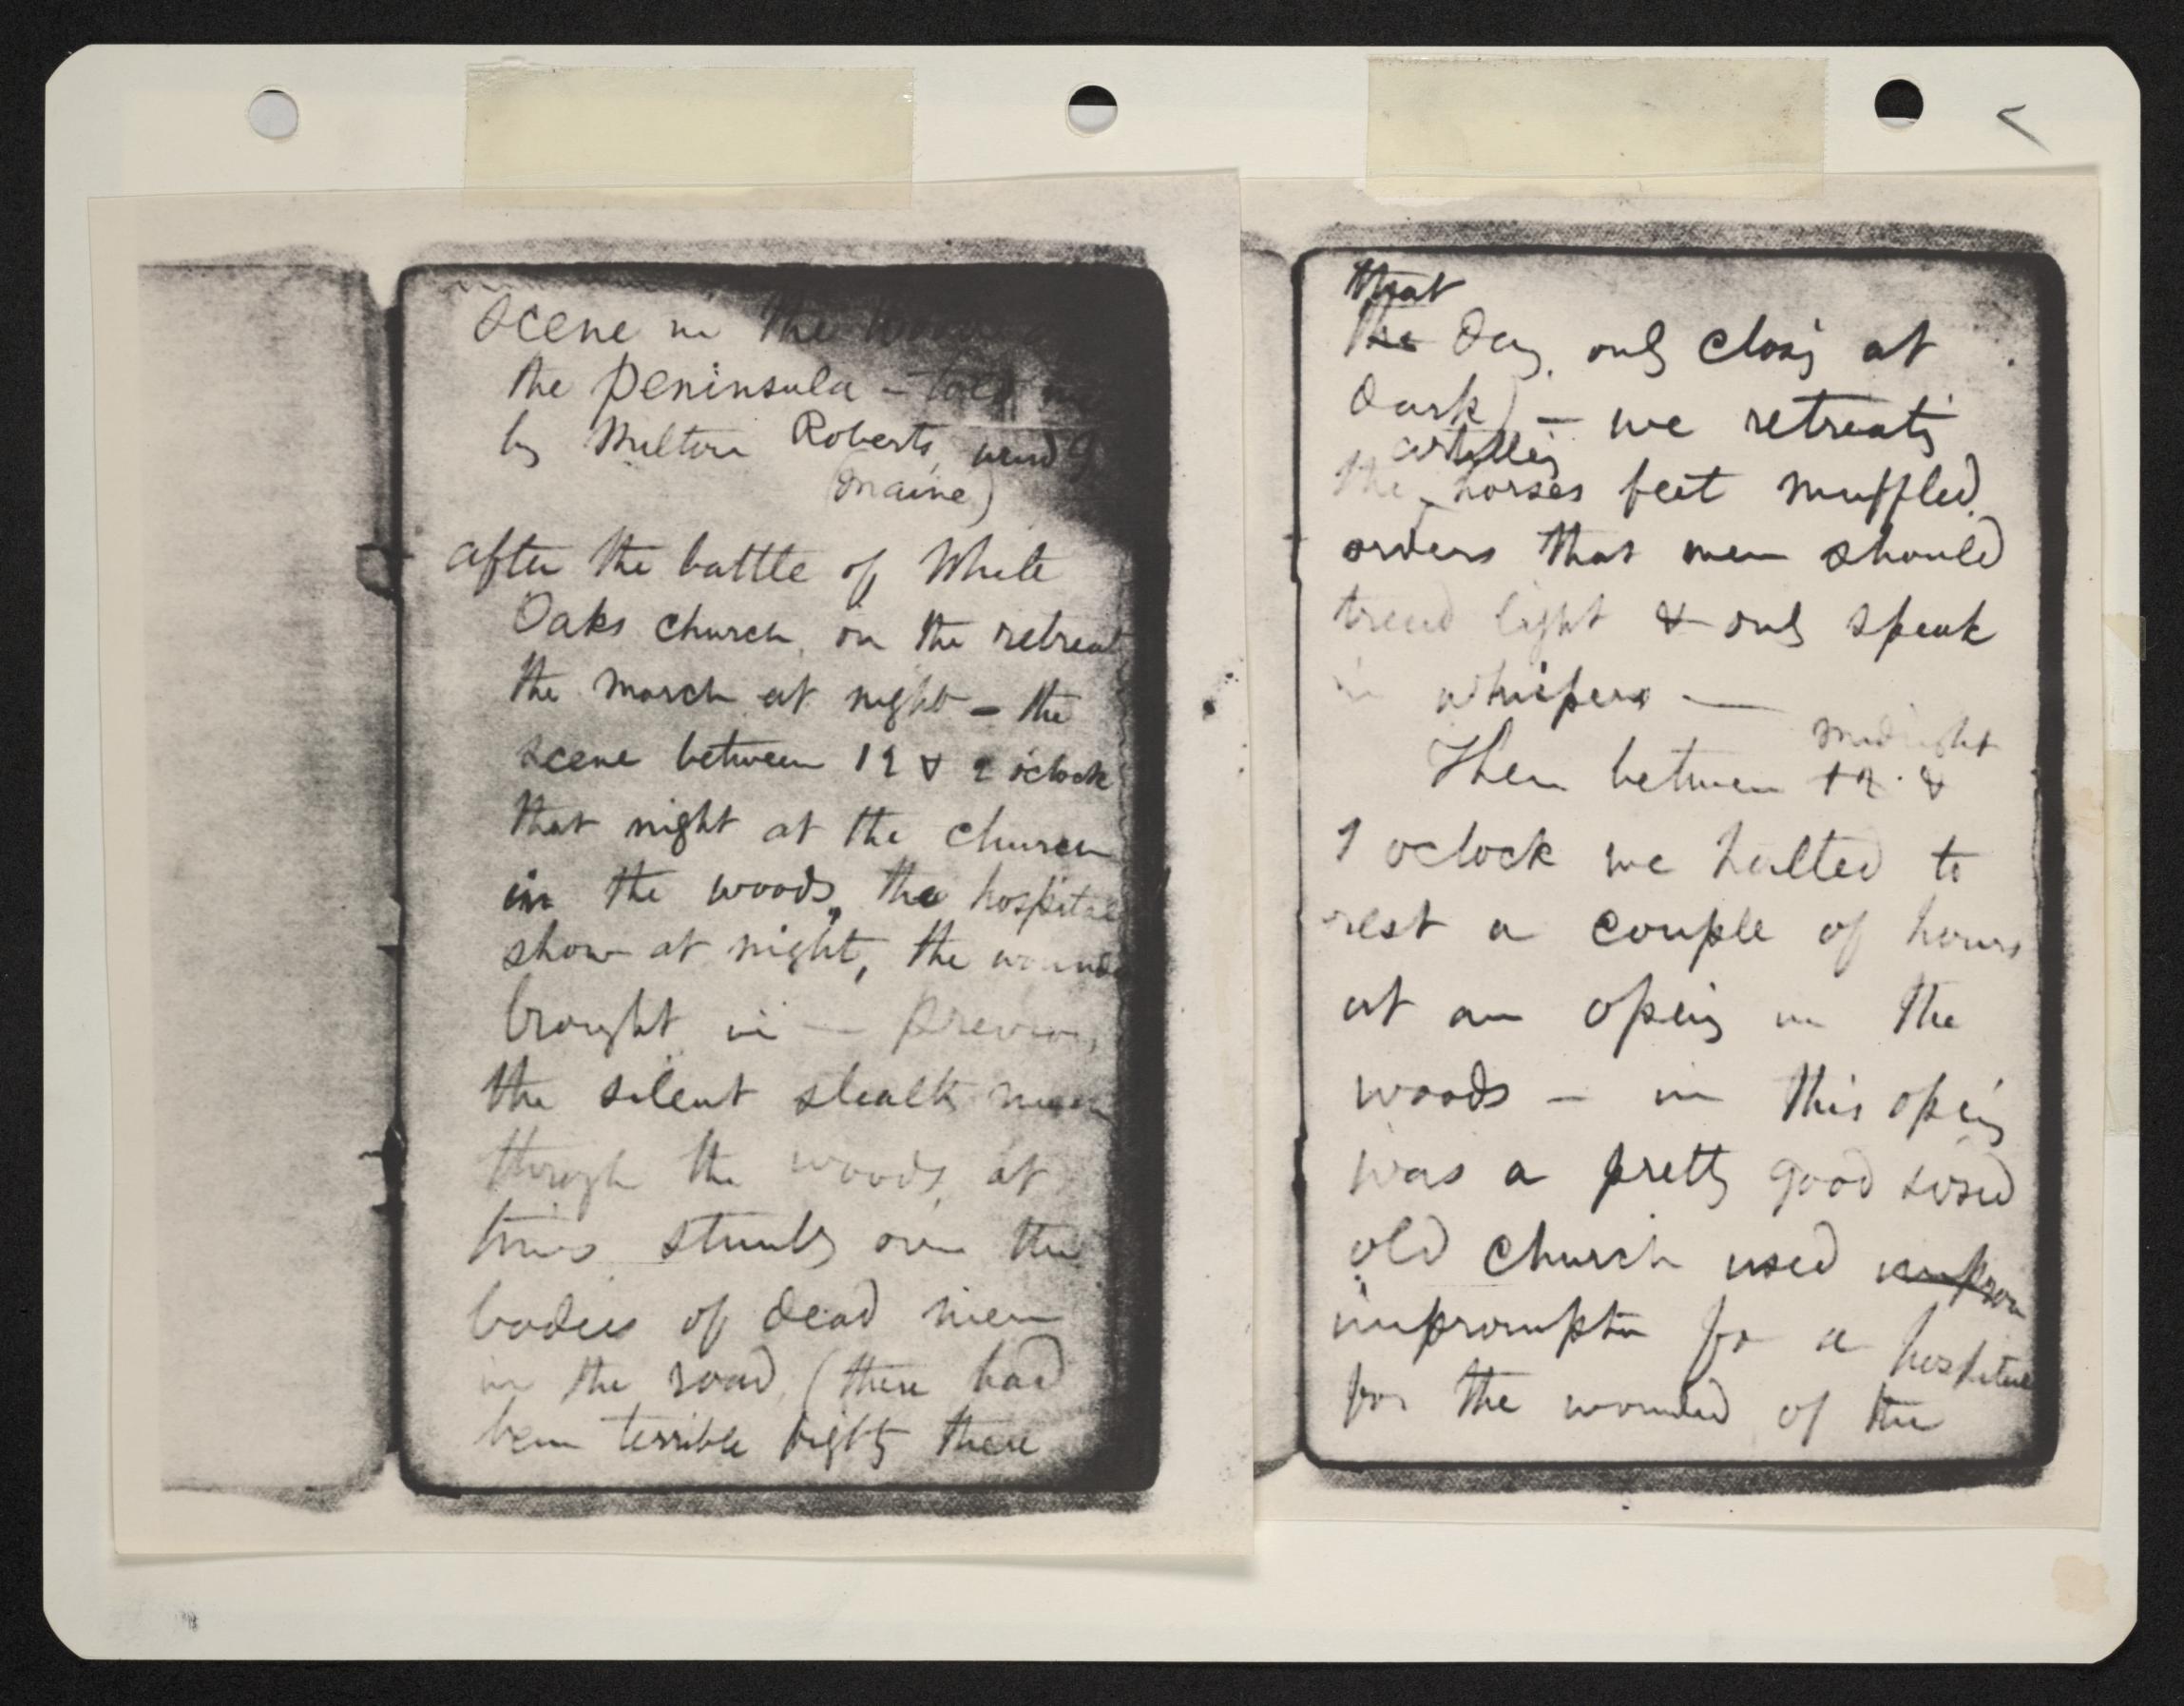 Scene in the woods on
the peninsula – told me
by Milton Roberts, ward G
(Maine)
after the battle of White
Oaks church, on the retreat
the march at night – the
scene between 12 & 2 o'clock
that night at the church
in the woods, the hospital
show at night, the wounded
brought in – previous,
the silent stealthy march
through the woods, at
times stumbling over the
bodies of dead men
in the road, (there had
been terrible fighting there
that
the day, only closing at
dark) – we retreating
artillery
the horses feet muffled,
orders that men should
tread light & only speak
in whispers —
midnight
Then between 12 &
1 oclock we halted to
rest a couple of hours
at an opening in the
woods – in this opening
was a pretty good sized
old church used improm
impromptu for a hospital
for the wounded of the